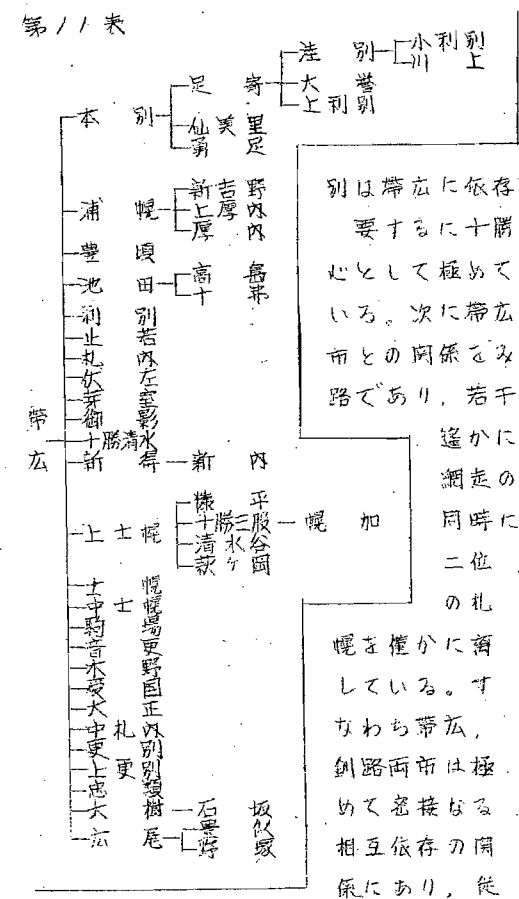 第11表
帯広
本別
足寄
陸別
小利別
川上
大誉
上利別
仙美里
勇足
浦幌
新吉野
上厚内
厚内
豊頃
池田
高島
十弗
利別
止若
札内
芽室
御影
十勝清水
新得
新内
上士幌
糠平
十勝三股
幌加
清水谷
萩ヶ岡
士幌
中士幌
駒場
音更
木野
愛国
大正
中札内
更別
上更別
忠類
大樹
石坂
広尾
豊似
野塚
別は帯広に依存
要するに十勝
心として極めて
いる。次に帯広
市との関係をみ
路であり，若干
遙かに
網走の
同時に
二位
の札
幌を僅かに離
している。す
なわち帯広，
釧路両市は極
めて密接なる
相互依存の関
係にあり，従